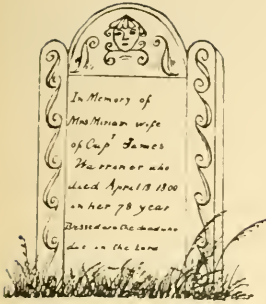 In Memory of
Mrs Miriam wife
of Capt James
Warranor who
died April 18 1800
in her 78 year
Blessed are the dead who
die in the Lord